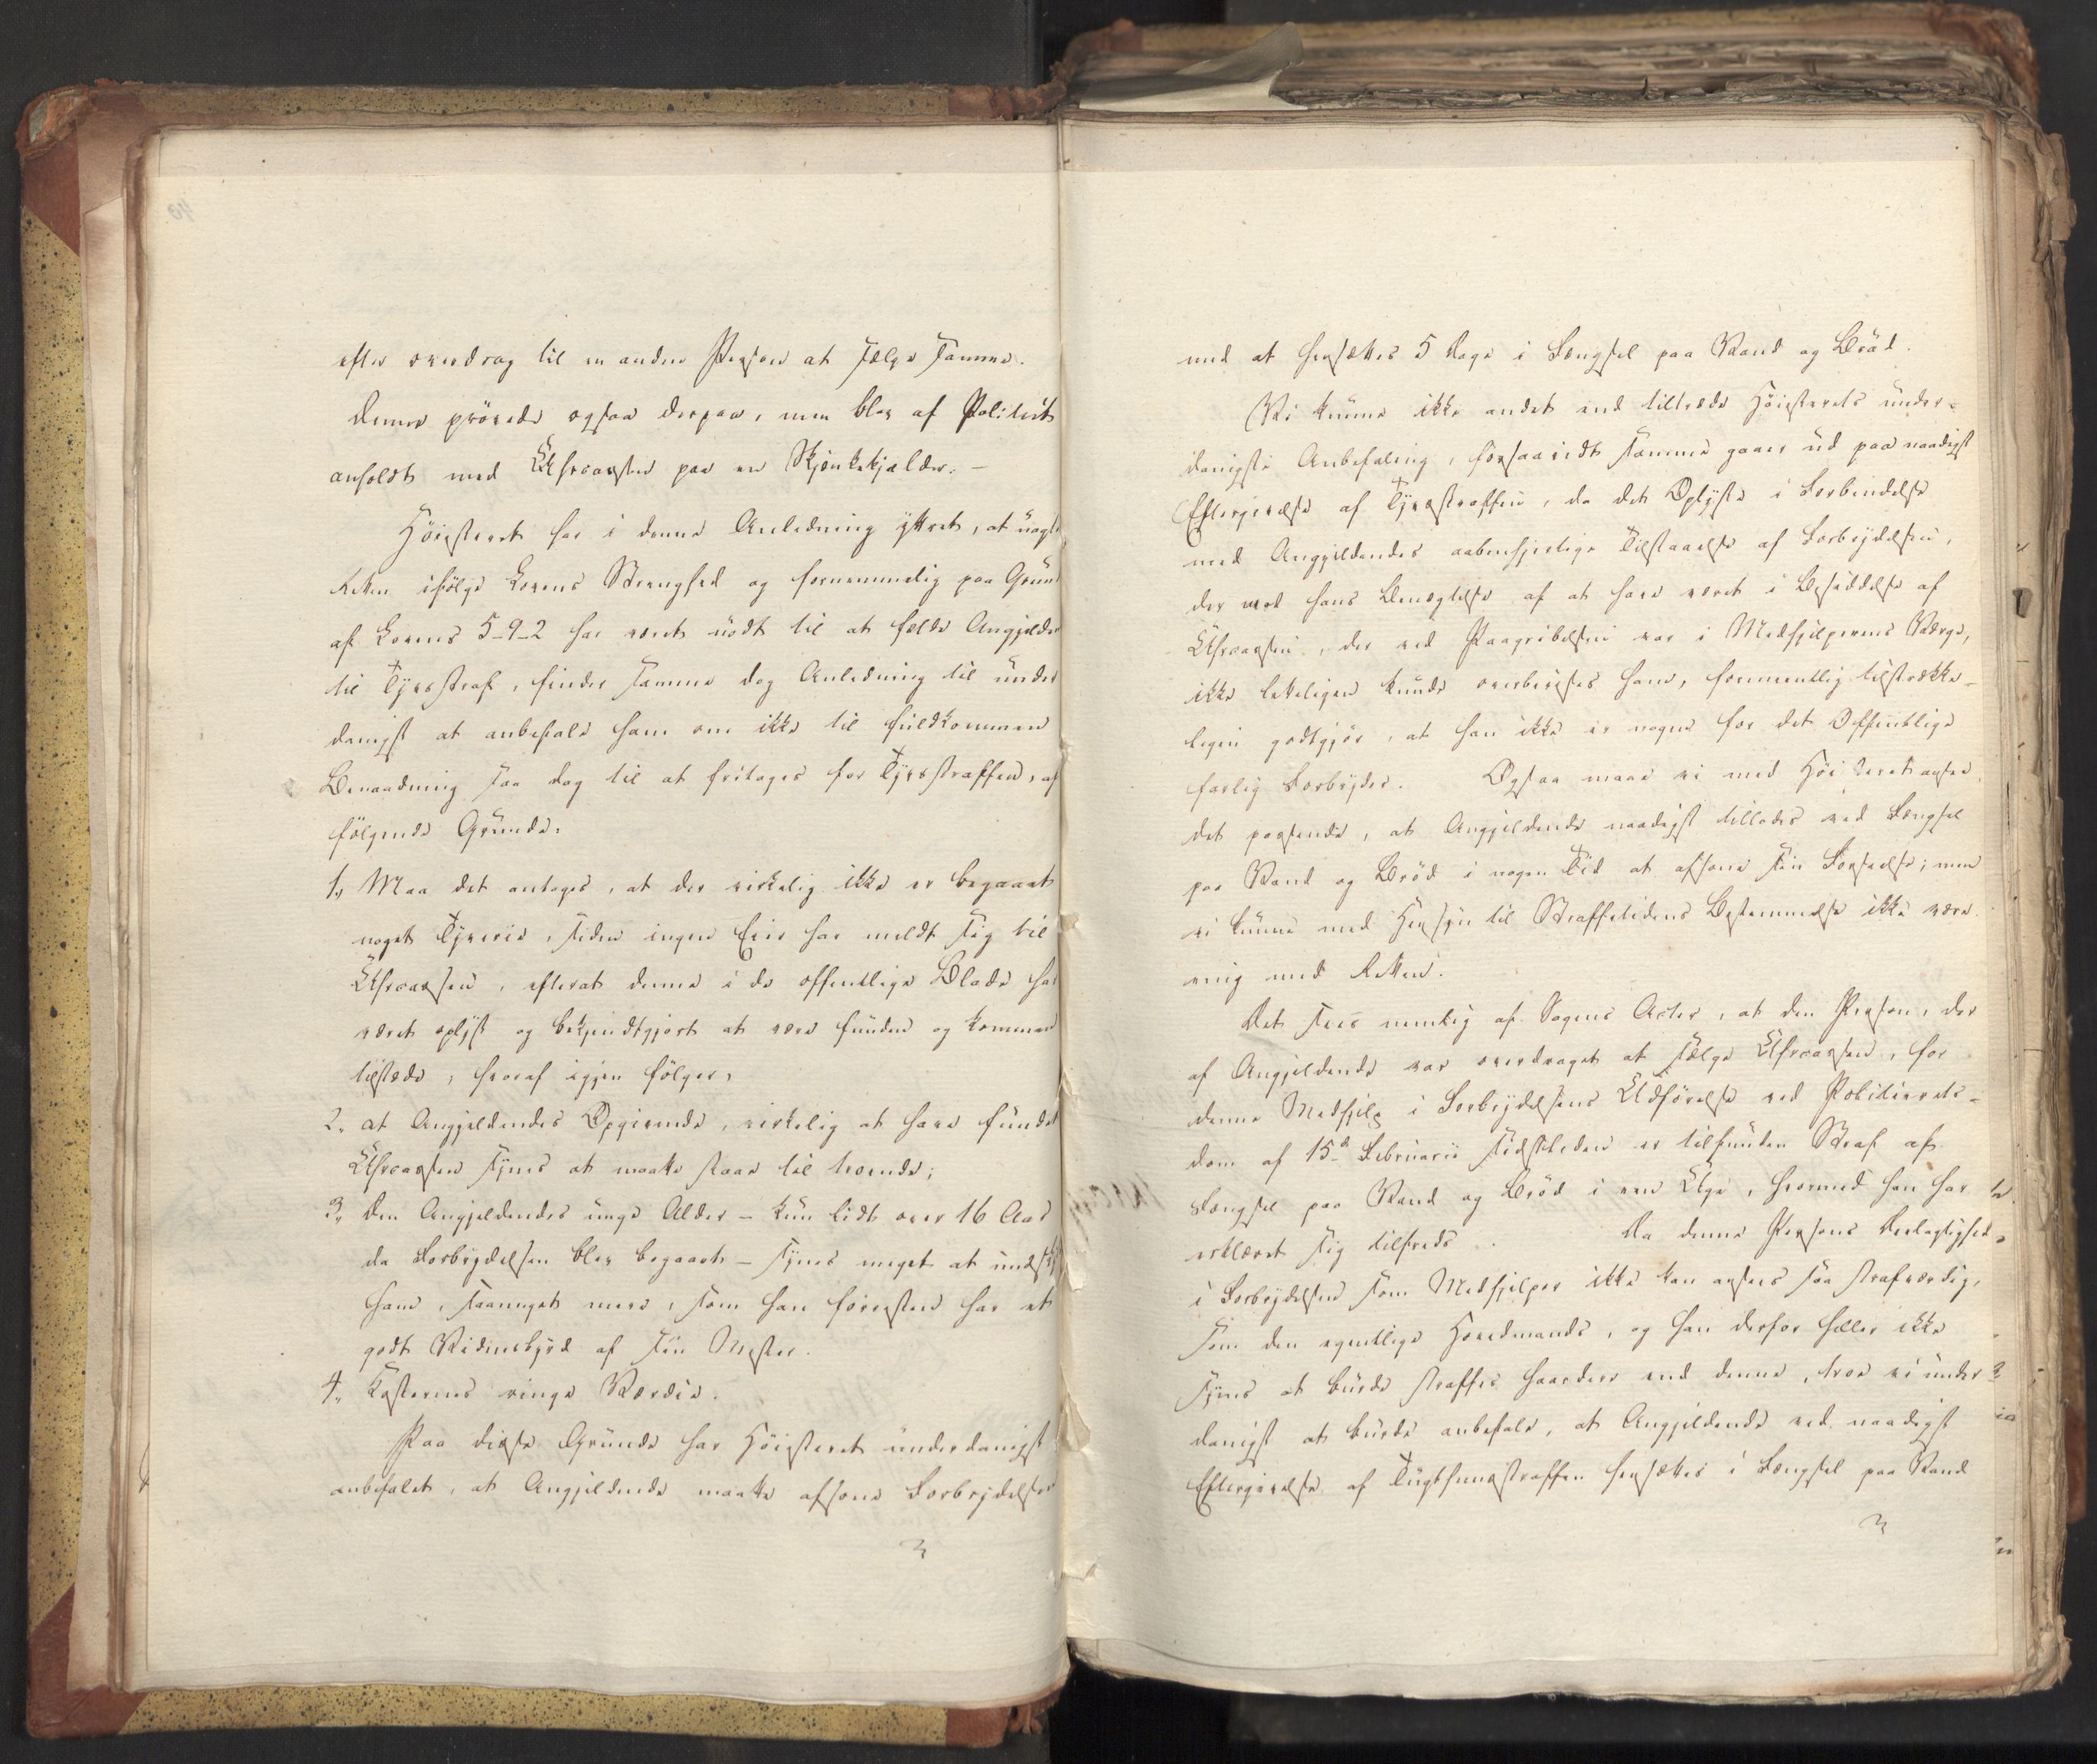 efter overdrog til en anden Person at sælge samme.
Denne prövede ogsaa derpaa, men blev af Politiet
anholdt med Uhrcassen paa en Skjenkekjælder. –
Höiesteret har i denne Anledning yttret, at uagt
Retten ifölge Lovens Strenghed og fornemmelig paa Grund
af Lovens 5-9-2 har været nödt til at fælde Angjelden
til Tyvsstraf, finder samme dog Anledning til under
danigst at anbefale ham om ikke til fuldkommen
Benaadning saa dog til at fritages for Tyvsstraffen, af
fölgende Grunde:
1, Maa det antages, at der virkelig ikke er begaaet
noget Tyverie, siden ingen Eier har meldt sig til
Uhrcassen, efterat denne i de offentlige Blade har
været oplyst og bekjendtgjort at være funden og kommen
tilstæde, hvoraf igjen fölger,
2, at Angjeldendes Opgivende, virkelig at have fundet
Uhrcassen synes at maatte staae til troende;
3, den Angjeldendes unge Alder – kun lidt over 16 Aar
da Forbrydelsen blev begaaet – synes meget at undsky
ham, saameget mere, som han forresten har et
godt Vidnesbyrd af sin Mester.
4, Kosternes ringe Værdie.
Paa disse Grunde har Höiesteret underdanigst
anbefalet, at Angjeldende maatte afsone Forbrydelsen
med at hensættes 5 Dage i Fængsel paa Vand og Bröd.
Vi kunne ikke andet end tiltræde Höiesterets under-
danigste Anbefaling, forsaavidt samme gaaer ud paa naadigst
Eftergivelse af Tyvsstraffen, da det Oplyste i Forbindelse
med Angjeldendes aabenhjertige Tilstaaelse af Forbrydelsen,
der mod hans Benægtelse af at have været i Besiddelse af
Uhrcassen, der ved Paagribelsen var i Medhjelperens Værge,
ikke letteligen kunde overbevises ham, formeentlig tilstrække-
ligen godtgjör, at han ikke er nogen for det Offentlige
farlig Forbryder. Ogsaa maae vi med Höiesteret ansee
det passende, at Angjeldende naadigst tillades ved Fængsel
paa Vand og Bröd i nogen Tid at afsone sin Forseelse; men
vi kunne med Hensyn til Straffetidens Bestemmelse ikke være
enig med Retten.
Det sees nemlig af Sagens Acter, at den Person, der
af Angjeldende var overdraget at sælge Uhrcassen, for
denne Medhjelp i Forbrydelsens Udförelse ved Politierets-
dom af 15de Februarii sidstleden er tilfunden Straf af
Fængsel paa Vand og Bröd i een Uge, hvormed han har
erklæret sig tilfreds. Da denne Persons Deelagtighed
i Forbrydelsen som Medhjelper ikke kan ansees saa strafværdig,
som den egentlige Hovedmands, og han derfor heller ikke
synes at burde straffes haardere end denne, troe vi under
danigst at burde anbefale, at Angjeldende ved naadigst
Eftergivelse af Tugthuusstraffen hensættes i Fængsel paa Vand